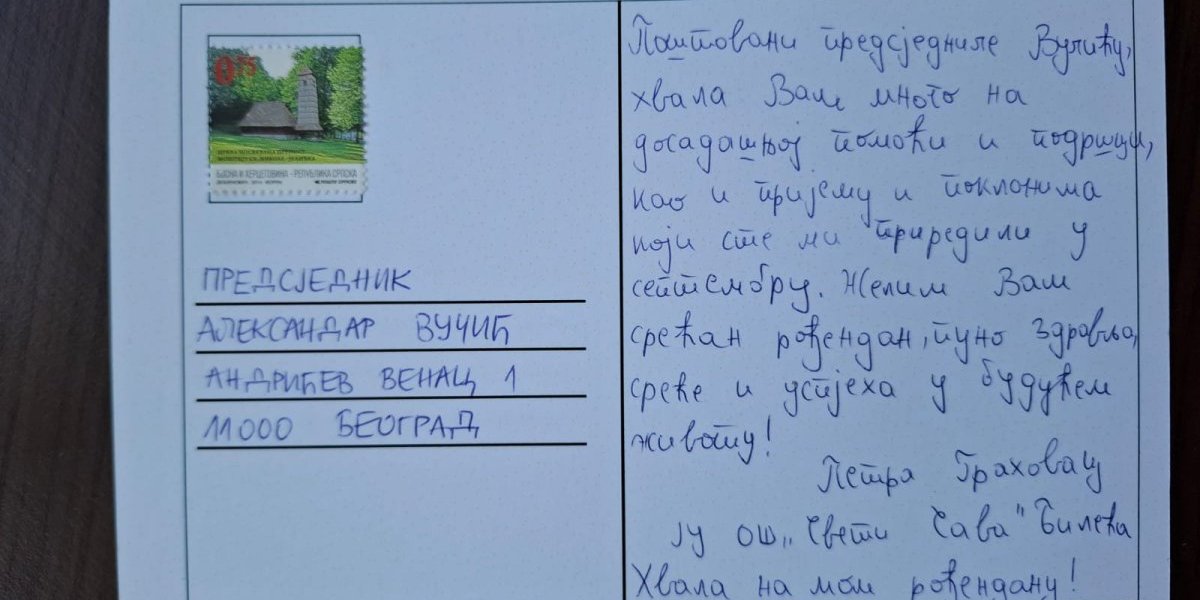 0.75
БОСНА И ХЕРЦЕГОВИНА - РЕПУБЛИКА СРПСКА
ПРЕДСЈЕДНИК
АЛЕКСАНДАР ВУЧИЋ
АНДРИЋЕВ ВЕНАЦ 1
11000 БЕОГРАД
Поштовани предсједниче Вучићу,
хвала Вам много на
досадашњој помоћи и подршци,
као и пријему и поклонима
који сте ми приредили у
септембру. Желим Вам
срећан рођендан, пуно здравља,
среће и успјеха у будућем
животу!
Петра Граховац
ЈУ ОШ „Свети Сава" Билећа
Хвала на мом рођендану!